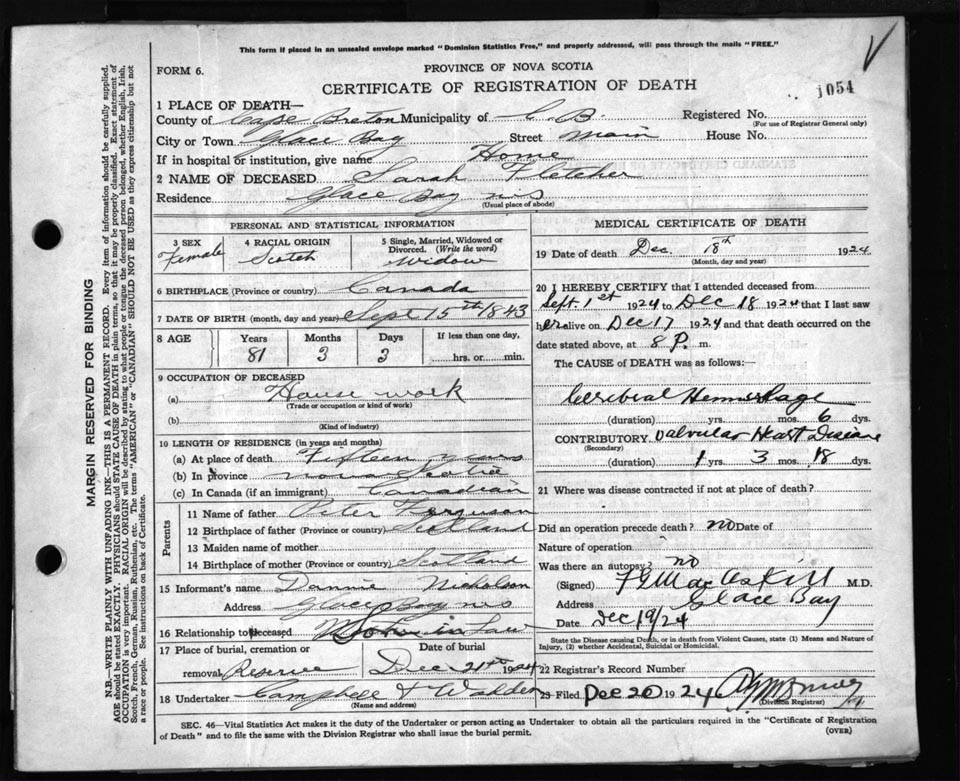 This form if placed in an unsealed envelope marked "Dominion Statistics Free," and properly addressed, will pass through the mails "FREE."
FORM 6.
PROVINCE OF NOVA SCOTIA
CERTIFICATE OF REGISTRATION OF DEATH
1054
1 PLACE OF DEATH—
County of Cape Breton Municipality of C B. Registered No.
(For use of Registrar General only)
City or Town Glace Bay Street Main House No.
If in hospital or institution, give name Home
2 NAME OF DECEASED Sarah Fletcher
Residence Glace Bay N S
(Usual place of abode)
PERSONAL AND STATISTICAL INFORMATION
3 SEX Female
4 RACIAL ORIGIN Scotch
5 Single, Married, Widowed or Divorced. (Write the word) Widow
6 BIRTHPLACE (Province or country) Canada
7 DATE OF BIRTH (month, day and year) Sept 15th 1843
8 AGE Years Months Days If less than one day,
81 3 3 hrs. or min.
9 OCCUPATION OF DECEASED
(a) House work
(Trade or occupation or kind of work)
(b)
(Kind of industry)
10 LENGTH OF RESIDENCE (in years and months)
(a) At place of death Fifteen years
(b) In province Nova Scotia
(c) In Canada (if an immigrant) Canadian
Parents
11 Name of father Peter Ferguson
12 Birthplace of father (Province or country) Scotland
13 Maiden name of mother
14 Birthplace of mother (Province or country) Scotland
15 Informant's name Dannie Nicholson
Address Glace Bay N S
16 Relationship to deceased in Law
17 Place of burial, cremation or Date of burial
removal Reserve Dec 21st 1924
18 Undertaker Campbell & Walder
(Name and address)
MEDICAL CERTIFICATE OF DEATH
19 Date of death Dec. 18th 1924
(Month, day and year)
20 I HEREBY CERTIFY that I attended deceased from
Sept. 1st 1924 to Dec 18 1924 that I last saw
her alive on Dec 17 1924 and that death occurred on the
date stated above, at 8 P. m.
The CAUSE of DEATH was as follows:—
Cerebral Hemorrhage
(duration) yrs. mos. 6 dys.
CONTRIBUTORY Valvular Heart Disease
(Secondary)
(duration) 1 yrs. 3 mos. 18 dys.
21 Where was disease contracted if not at place of death?
Did an operation precede death? no Date of
Nature of operation
Was there an autopsy? no
(Signed) MacAskill M.D.
Address Glace Bay
Date Dec 19/24
State the Disease causing Death, or in death from Violent Causes, state (1) Means and Nature of
Injury, (2) whether Accidental, Suicidal or Homicidal.
22 Registrar's Record Number
23 Filed Dec 20 1924
(Division Registrar)
SEC. 46—Vital Statistics Act makes it the duty of the Undertaker or person acting as Undertaker to obtain all the particulars required in the "Certificate of Registration
of Death" and to file the same with the Division Registrar who shall issue the burial permit.
(OVER)
MARGIN RESERVED FOR BINDING
N.B.—WRITE PLAINLY WITH UNFADING INK—THIS IS A PERMANENT RECORD. Every item of information should be carefully supplied.
AGE should be stated EXACTLY. PHYSICIANS should STATE CAUSE OF DEATH in plain terms, so that it may be properly classified. Exact statement of
OCCUPATION is very important. RACIAL ORIGIN will be described by stating to what people or tongue the deceased person belonged, whether English, Irish,
Scotch, French, German, Russian, Ruthenian, etc. The terms "AMERICAN" or "CANADIAN" SHOULD NOT BE USED as they express citizenship but not
a race or people. See instructions on back of Certificate.